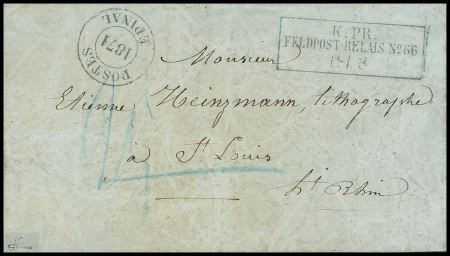 POSTES
EPINAL
1871
K. PR.
FELDPOST-RELAIS No 66
Monsieur
Etienne Heinzmann, lithographe
à St Louis
ht Rhin